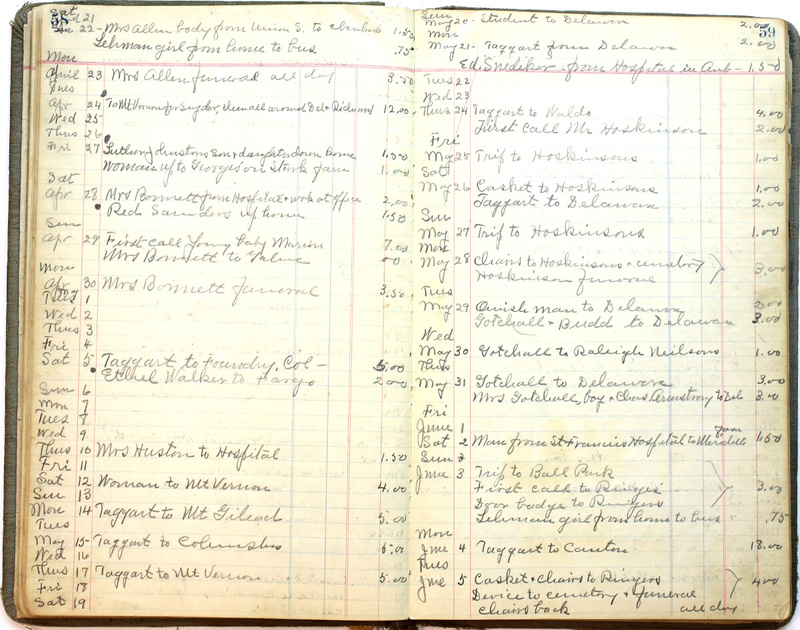 58
Sat
21
Sun 22 - Mrs Allen body from Union S. to 1.50
Lehman girl from home to bus .75
Mon
April 23 Mrs Allen funeral all day 3.50
Tues
Apr 24 To Mt Vernon for Snyder, then all around Del & Richwood 12.00
Wed 25
Thus 26
Fri 27 Luther Johnstons Son & daughter down home 1.50
Woman up to Georges on Stark farm 1.00
Sat
Apr 28 Mrs Bonnett from Hospital & work at office 2.00
Red Saunders up home 1.50
Sun
Apr 29 First call young baby Marion 7.00
Mrs Bonnett to Galena 00
Mon
Apr 30 Mrs Bonnett funeral 3.50
Tues 1
Wed 2
Thus 3
Fri 4
Sat 5 Taggart to Foundry, Col - 5.00
Ethel Walker to Fargo 2.00
Sun 6
Mon 7
Tues 8
Wed 9
Thus 10 Mrs Huston to Hospital 1.50
Fri 11
Sat 12 Woman to Mt Vernon 4.00
Sun 13
Mon 14 Taggart to Mt Gilead 5.00
Tues
May 15 - Taggart to Columbus 5.00
Wed 16
Thus 17 Taggart to Mt Vernon 5.00
Fri 18
Sat 19
59
Sun
May 20 - Student to Delaware 2.00
Mon
May 21 - Taggart from Delaware 2.00
Ed, Snediker - from Hospital in Amb - 1.50
Tues 22
Wed 23
Thus 24 Taggart to Waldo 4.00
First Call Mr Hoskinson 2.00
Fri
May 25 Trip to Hoskinsons 1.00
Sat
May 26 Casket to Hoskinsons 1.00
Taggart to Delaware 2.00
Sun
May 27 Trip to Hoskinsons 1.00
Mon
May 28 Chairs to Hoskinsons & cemetery
Hoskinson funeral 3.00
Tues
May 29 Amish man to Delaware 2.00
Gotchall & Budd to Delaware 3.00
Wed
May 30 Gotchall to Raleigh Neilsons 1.00
Thus
May 31 Gotchall to Delaware 3.00
Mrs Gotchall, boy & Chas Armstrong to Del 3.00
Fri
June 1
Sat 2 Man from St Francis Hospital to farm 1.50
Sun 3
June 3 Trip to Ball Park
First call to Ringers 3.00
Door badge to Ringers
Lehman girl from home to bus .75
Mon
June 4 Taggart to Canton 18.00
Tues
June 5 Casket & Chairs to Ringers 4.00
Device to cemetery & funeral
chairs back all day